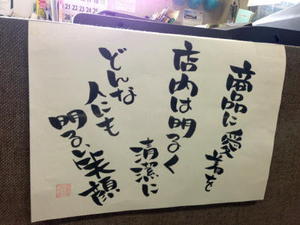 商品に愛着を
店内は明るく
清潔に
どんな
人にも
明るい笑顔